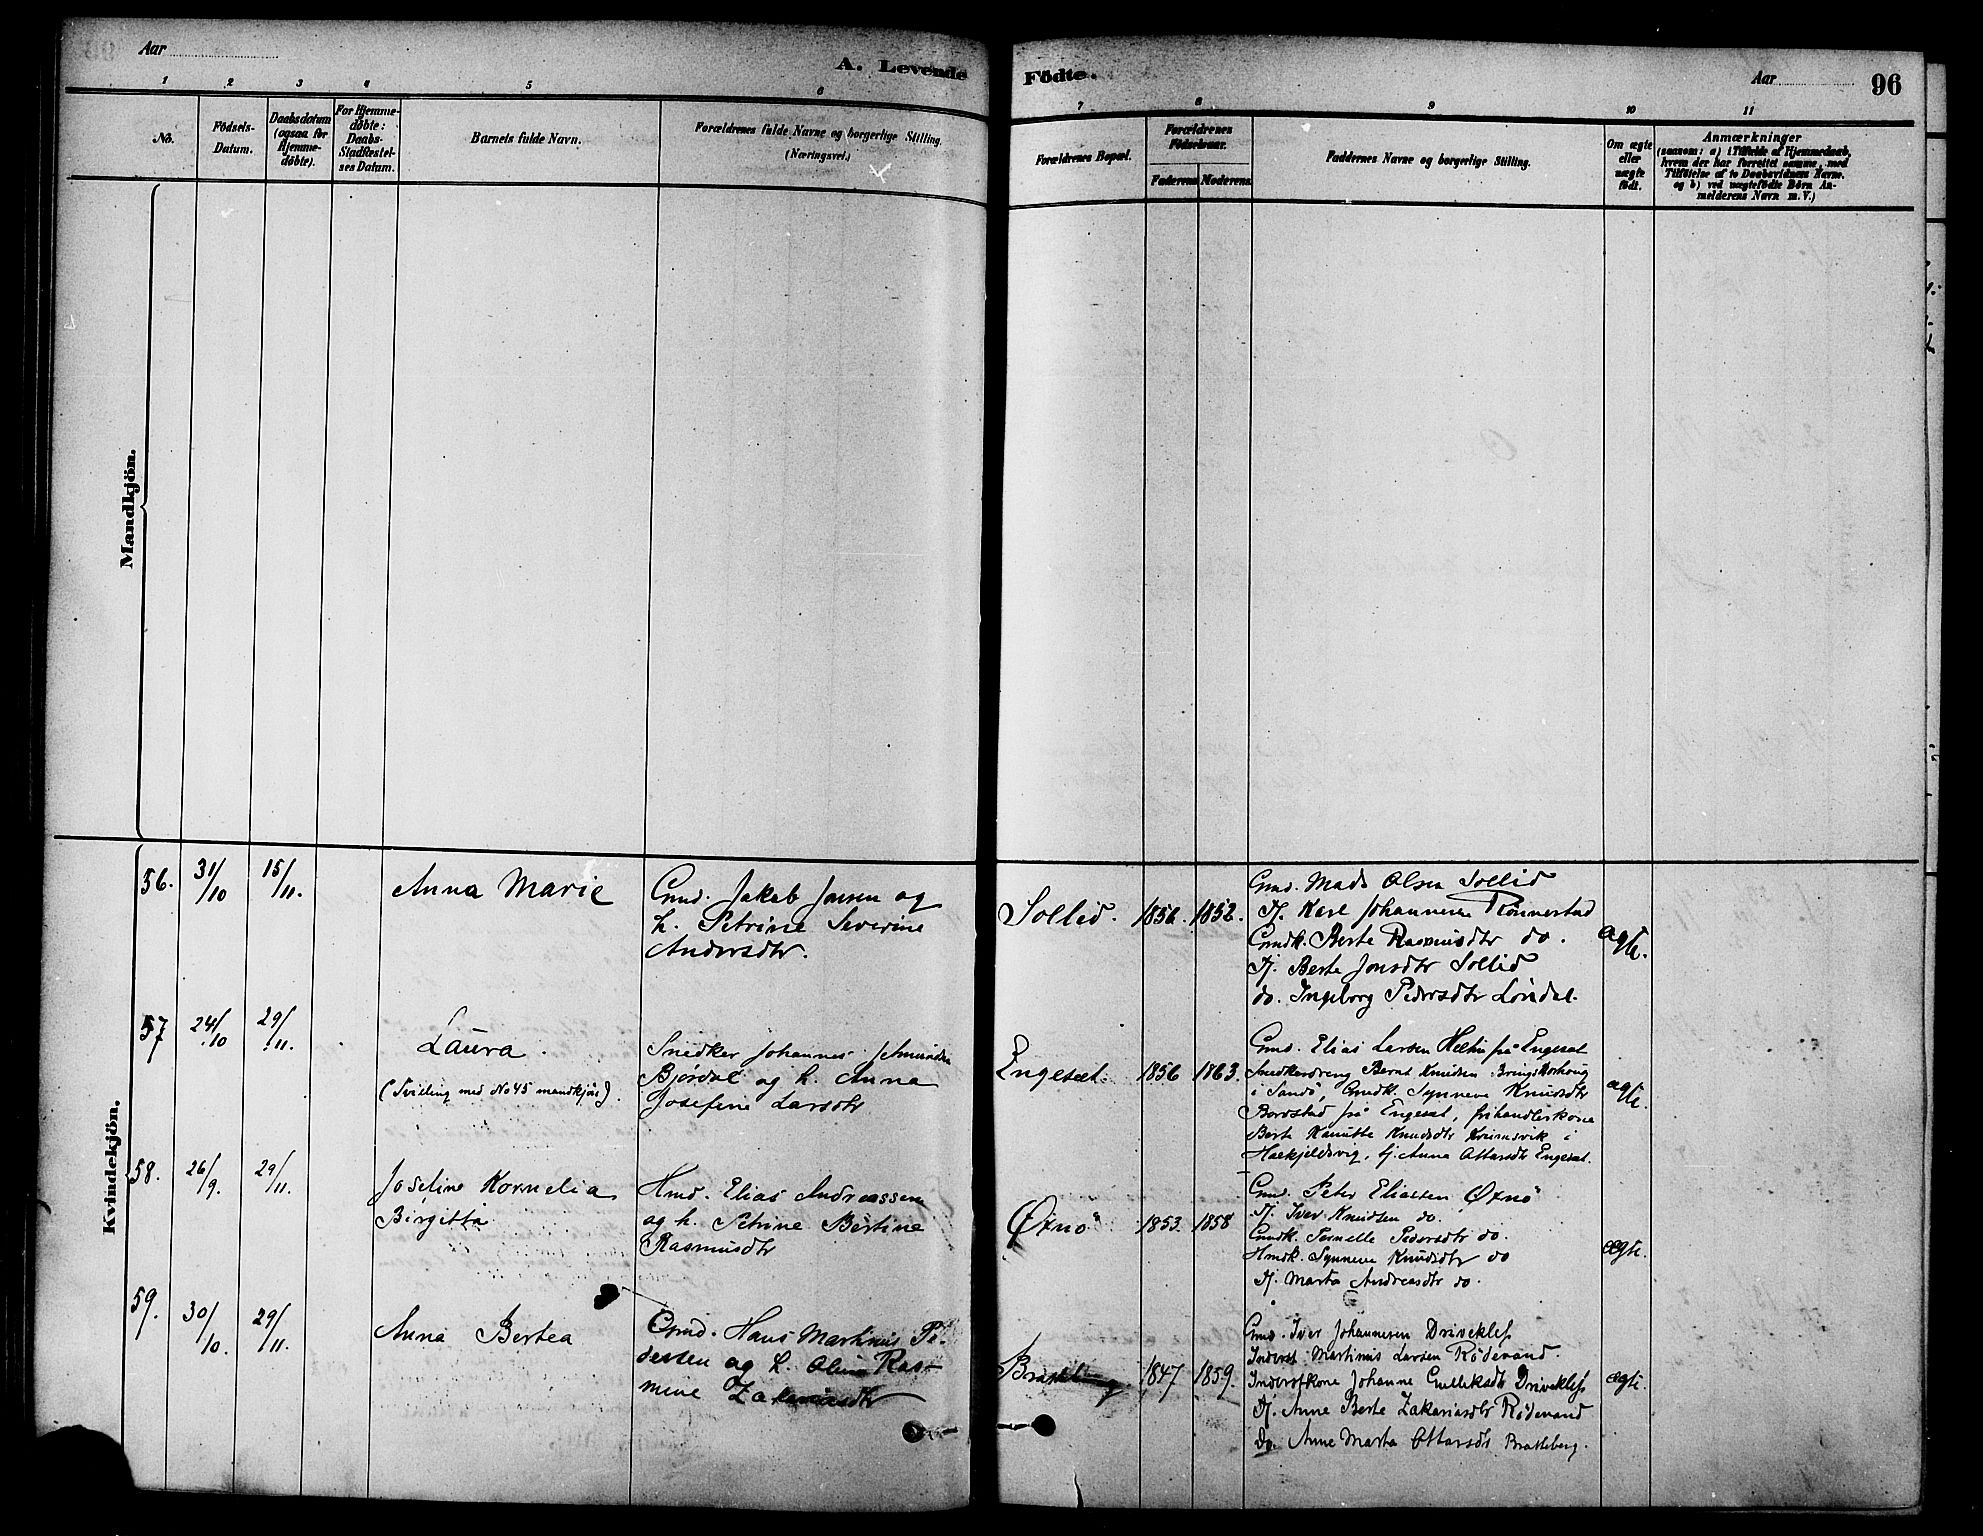 Aar
A. Levende Födte.
Aar
96
1 2 3 4 5 6 7 8 9 10 11
No.
Födsels-
Datum.
Daabsdatum
(ogsaa for
Hjemme-
døbte).
For Hjemme-
døbte:
Daabs-
Stadfæstel-
ses Datum.
Barnets fulde Navn.
Forældrenes fulde Navne og borgerlige Stilling.
(Næringsvei.)
Forældrenes Bopæl.
Forældrenes
Födselsaar.
Faderens Moderens
Faddernes Navne og borgerlige Stilling.
Om ægte
eller
uægte
födt.
Anmærkninger
(saasom: a) i Tilfælde af Hjemmedaab,
hvem der har forrettet samme, med
Tilföielse af to Daabsvidners Navne.
og b) ved uægtefödte Börn An-
melderens Navn m. V.)
Mandkjön.
Kvindekjön.
56. 31/10 15/11.
Anna Marie
Gmd. Jakob Jonsen og
h. Petrine Severine
Andersdtr.
Sollid. 1856. 1852.
Gmd. Mads Olsen Sollid
Tj. Karl Johannesen Rönnestad
Gmdk. Berte Rasmusdtr do.
Tj. Berte Jonsdtr Sollid
do. Ingeborg Pedersdtr
ægte.
57 24/10 29/11.
Laura.
(Tvilling med No 45 mandkjön).
Snedker Johannes
Björdal og h. Anna
Josefine Larsdtr
Engeset. 1856 1863.
Gmd. Elias Larsen frå Engeset
Snedkerdreng Bernt Knudsen
i Sandö, Gmdk. Synneve Knudsdtr
frå Engeset, frihandlerkone
Berte Knudsdtr i
tj. Anna Ottarsdtr Engeset.
ægte.
58. 26/9. 29/11.
Josefine Kornelia
Birgitta
Hmd. Elias Andreassen
og h. Petrine Bertine
Rasmusdtr
Øxnö 1853. 1858
Gmd. Peter Eliassen Øxnö
Tj. Iver Knudsen do.
Gmdk. Pernelle Pedersdtr do.
Hmdk. Synneve Knudsdtr do
Tj. Marta Andreasdtr do.
ægte.
59. 30/10. 29/11.
Anna Bertea
Gmd. Hans Martinus Pe-
dersen og h. Oline Ras-
mine Zakariasdtr
Bratteberg 1847. 1859.
Gmd. Iver Johannesen Driveklep
Inderst Martinus Larsen Rödevand.
Inderstkone Johanne Driveklep
Tj. Anne Berte Zakariasdtr Rödevand
do. Anne Marta Ottarsdtr Bratteberg.
ægte.